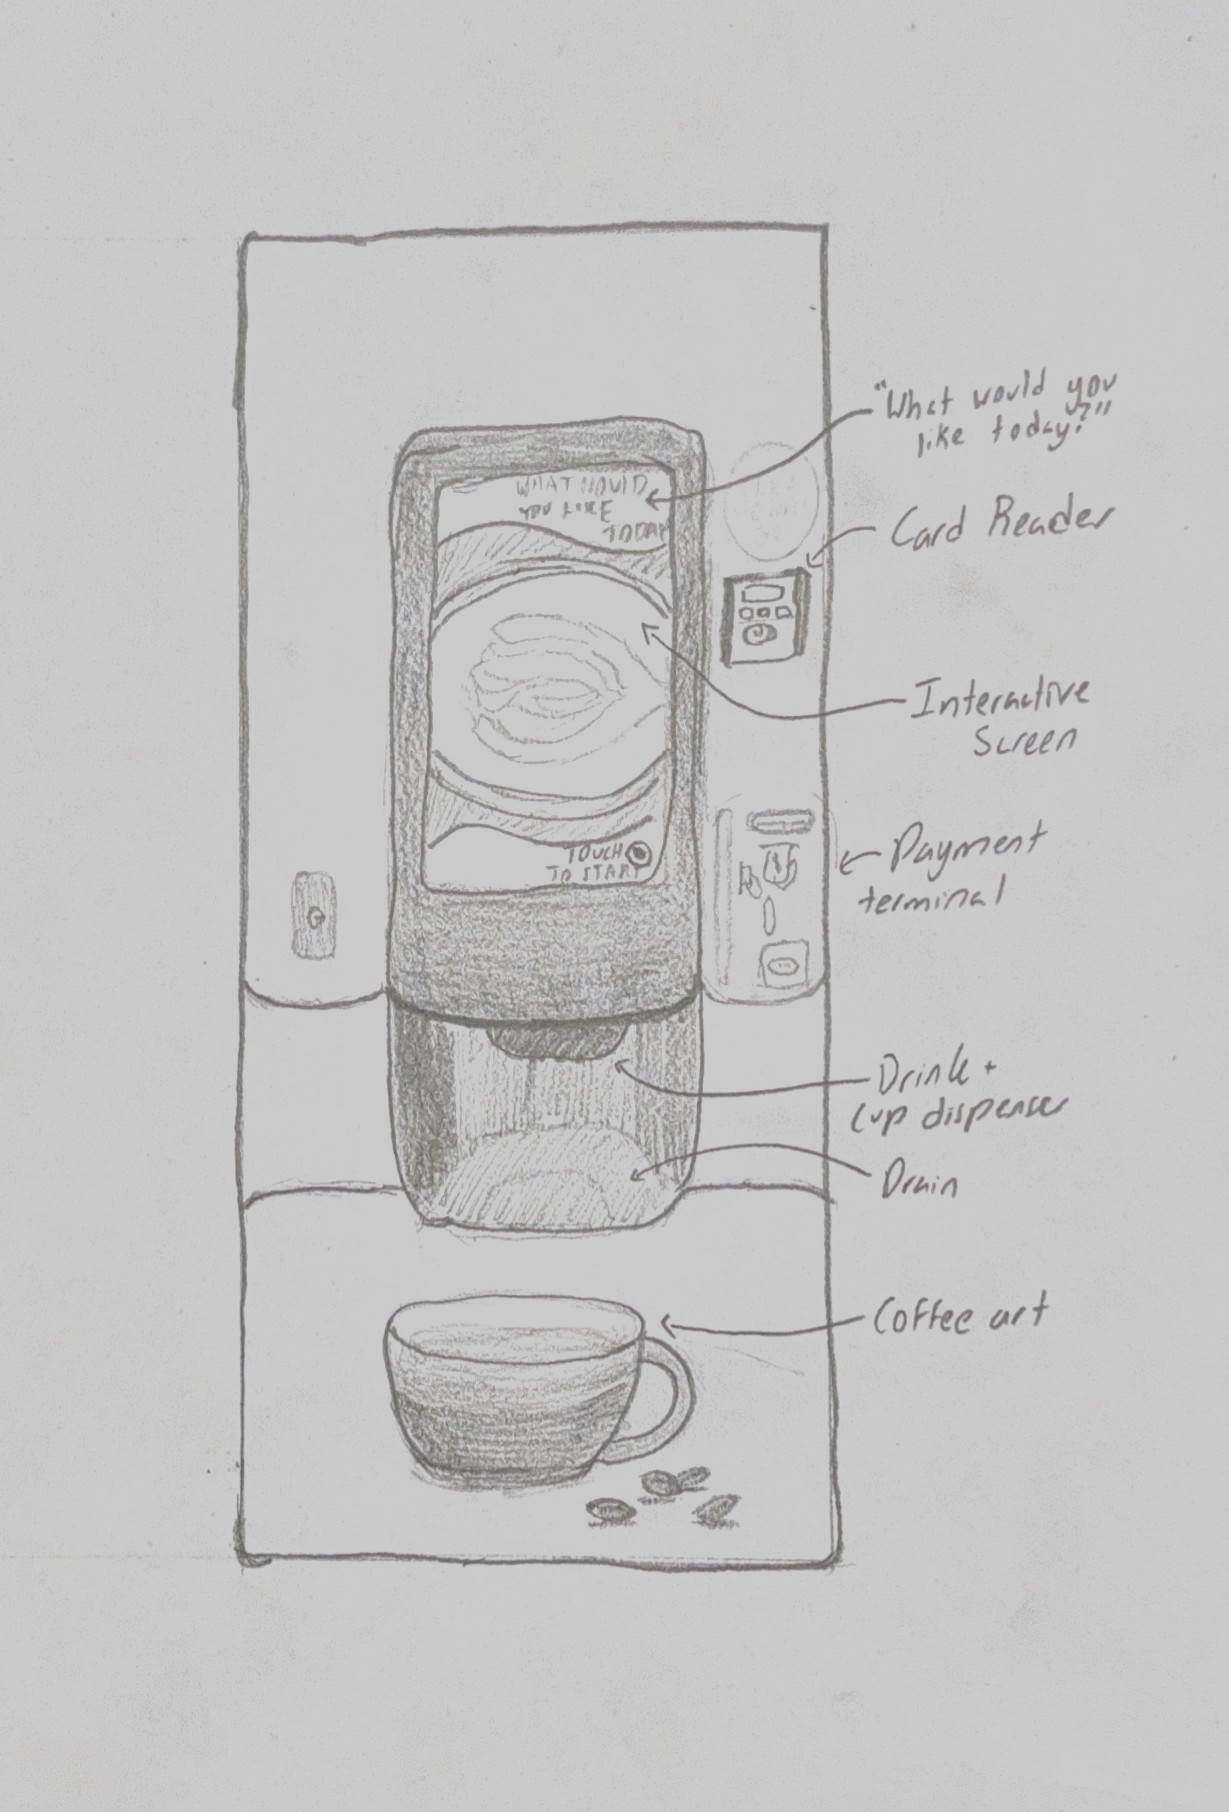 "What would you
like today?"
WHAT WOULD
YOU LIKE
TODAY
Card Reader
Interactive
Screen
Payment
terminal
TOUCH
TO START
Drink +
Cup dispenser
Drain
Coffee art